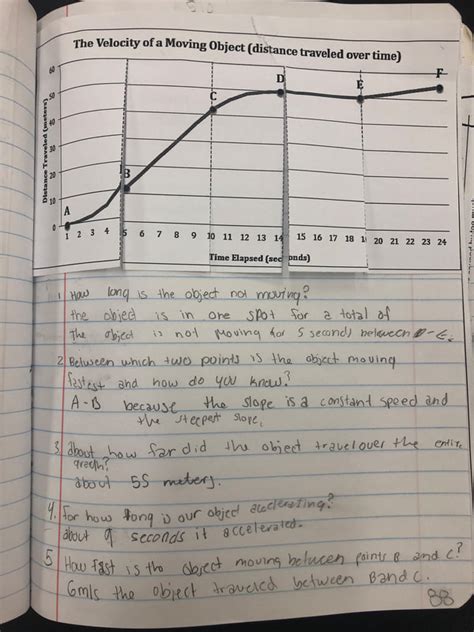 The Velocity of a Moving Object (distance traveled over time)
60
50
40
30
20
10
0
Distance Traveled (meters)
A
B
C
D
E
F
1 2 3 4 5 6 7 8 9 10 11 12 13 14 15 16 17 18 20 21 22 23 24
Time Elapsed (seconds)
1. How long is the object not moving?
the object is in one spot for a total of
The object is not moving for 5 seconds between D-E.
2. Between which two points is the object moving
fastest and how do you know?
A-B because the slope is a constant speed and
the steepest slope.
3. about how far did the object travel over the entire
graph?
about 55 meters.
4. For how long is our object accelerating?
about 9 seconds it accelerated.
5 How fast is the object moving between points B and C?
6m/s the object traveled between B and C.
88